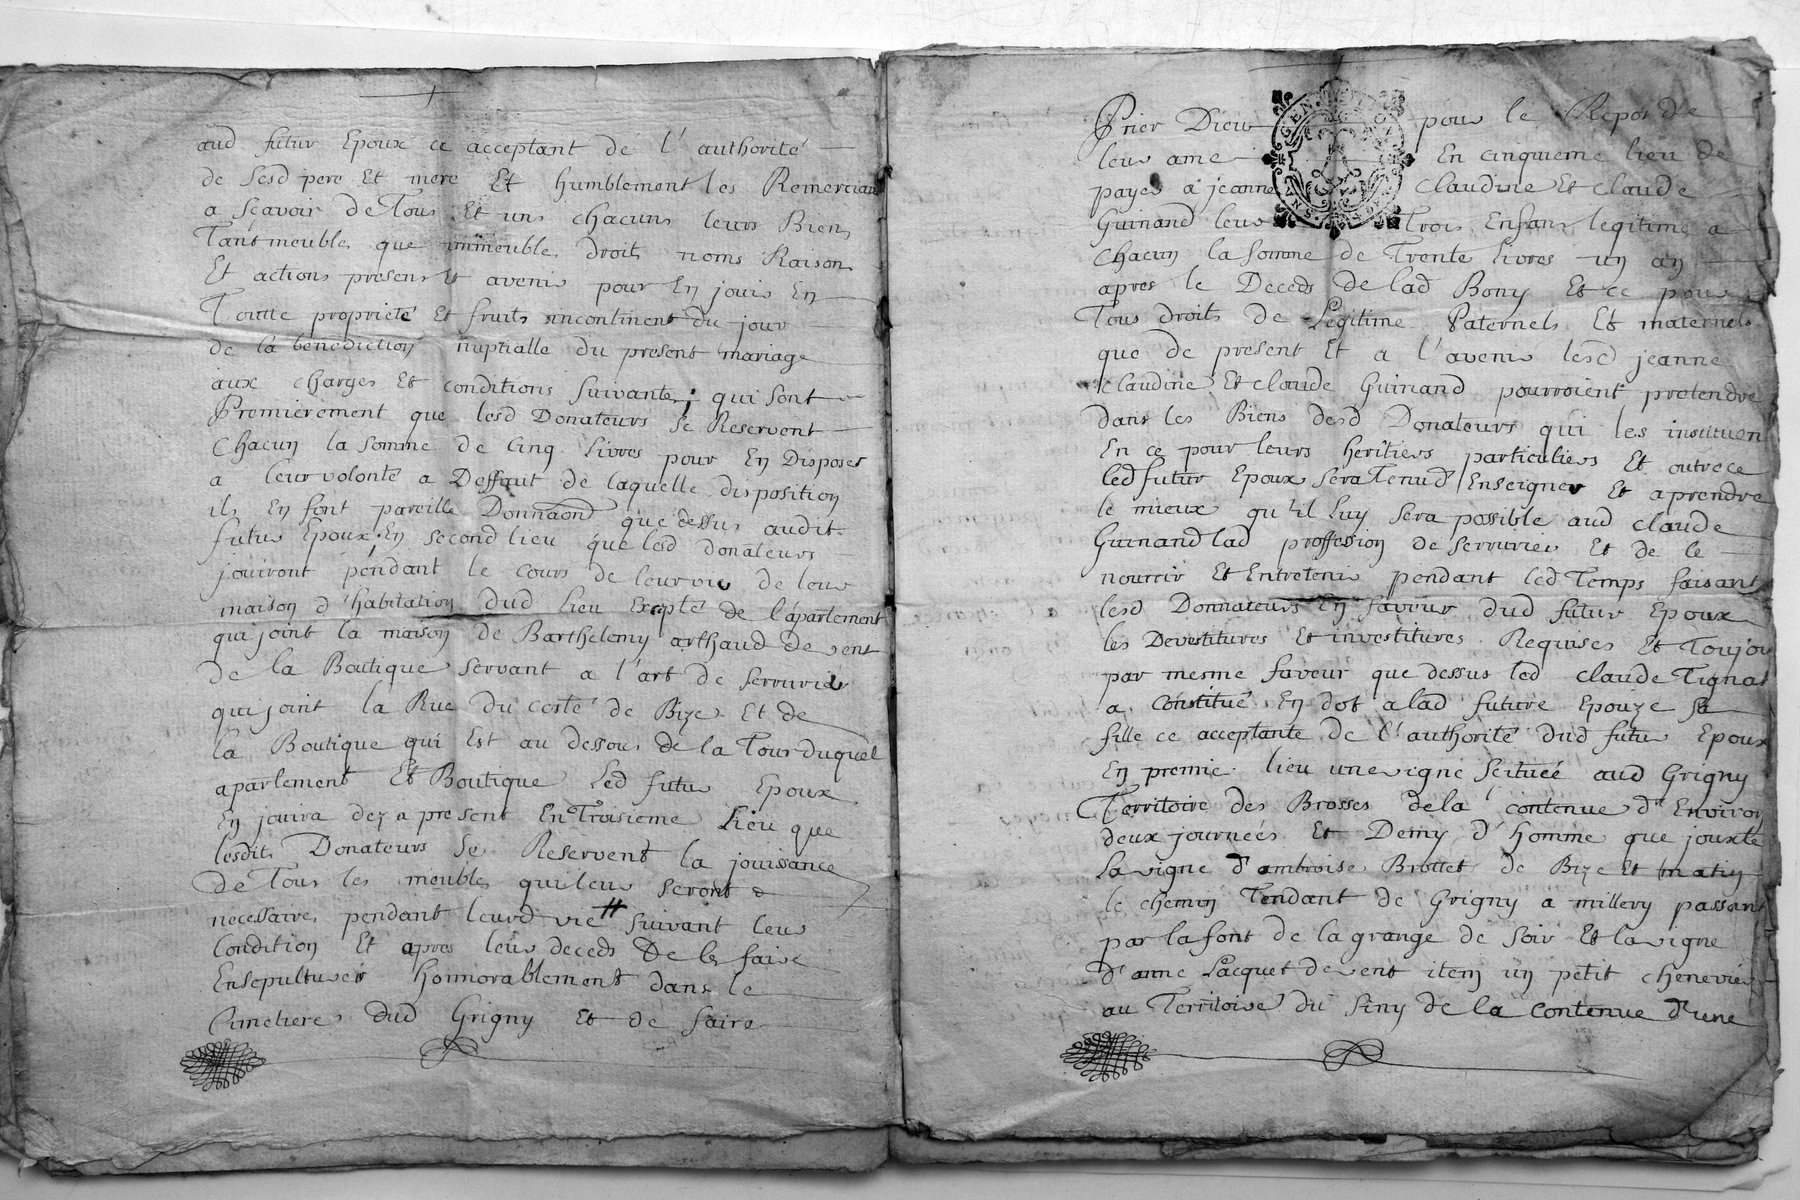 aud futur Epoux ce acceptant de l'authorité
de Sesd pere Et mere Et humblement les Remercian
a Sçavoir de Tous Et uns chacuns leurs Biens
Tant meubles que immeubles droits noms Raisons
Et actions presens Et avenir pour En jouir En
Toutte proprieté Et fruits incontinent du jour
de la benediction nuptialle du present mariage
aux charges Et conditions Suivantes; qui sont
Premierement que lesd Donateurs se Reservent
Chacun la somme de Cinq Livres pour En Disposer
a leur volonté a Deffaut de laquelle disposition
ils En font pareille Donnaond que dessus audit
futur Epoux; En second lieu que lesd donateurs
jouiront pendant le cours de leur vie de leur
maison d'habitation dud Lieu Excepté de l'apartement
qui joint la maison de Barthelemy arthaud de vent
de la Boutique servant a l'art de serrurier
qui joint la Rue du costé de Bize Et de
la Boutique qui Est au dessous de la Tour duquel
apartement Et Boutique Led futur Epoux
En jouira dez a present En Troisieme Lieu que
lesdits Donateurs Se Reservent la jouissance
de Tous les meubles qui leur seront
necessaires pendant leurd vie # suivant leur
Condition Et apres leur deceds De les faire
Ensepulturer honnorablement dans le
Cimetiere dud Grigny Et de faire
Prier Dieu pour le Repos de
leur ame En cinquieme lieu de
payer a jeanne Claudine Et claude
Guinand leurs Trois Enfans legitimes a
Chacun la somme de Trente Livres un an
apres le Deceds de lad Bony Et ce pour
Tous droits de Legitime Paternels Et maternels
que de present Et a l'avenir lesd jeanne
Claudine Et claude Guinand pourroient pretendre
dans les Biens desd Donateurs qui les instituent
En ce pour leurs heritiers particuliers Et outre ce
led futur Epoux sera Tenu d'Enseigner Et aprendre
le mieux qu'il Luy sera possible aud Claude
Guinand lad proffession de serrurier Et de le
nourrir Et Entretenir pendant led Temps faisants
lesd Donnateurs En faveur dud futur Epoux
les Devestitures Et investitures Requises Et Toujou
par mesme faveur que dessus led Claude Tignat
a Constitué En dot a lad future Epouze sa
fille ce acceptante de l'authorité dud futur Epoux
En premie lieu une vigne scituée aud Grigny
Territoire des Brosses de la contenue d'Environ
deux journées Et Demy d'homme que jouxte
La vigne d'ambroise Brottet de Bize Et matin
le chemin Tendant de Grigny a millery passant
par la font de la grange de soir Et la vigne
d'anne Lacquet de vent item un petit chenevier
au Territoire du Finy de la contenue d'une